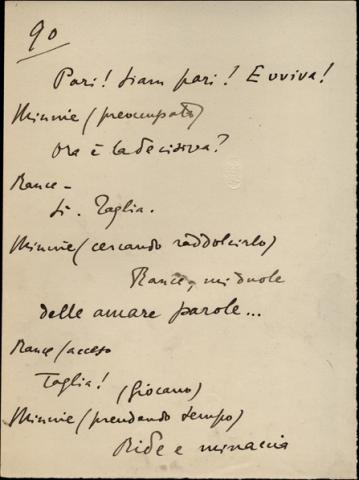 90
Pari! Siam pari! Evviva!
Minnie (preoccupata)
Ora è la decisiva?
Rance -
Sì. Taglia.
Minnie (cercando raddolcirlo)
Rance, mi duole
delle amare parole...
Rance (acceso
Taglia! (giocano)
Minnie (prendendo tempo)
Ride e minaccia